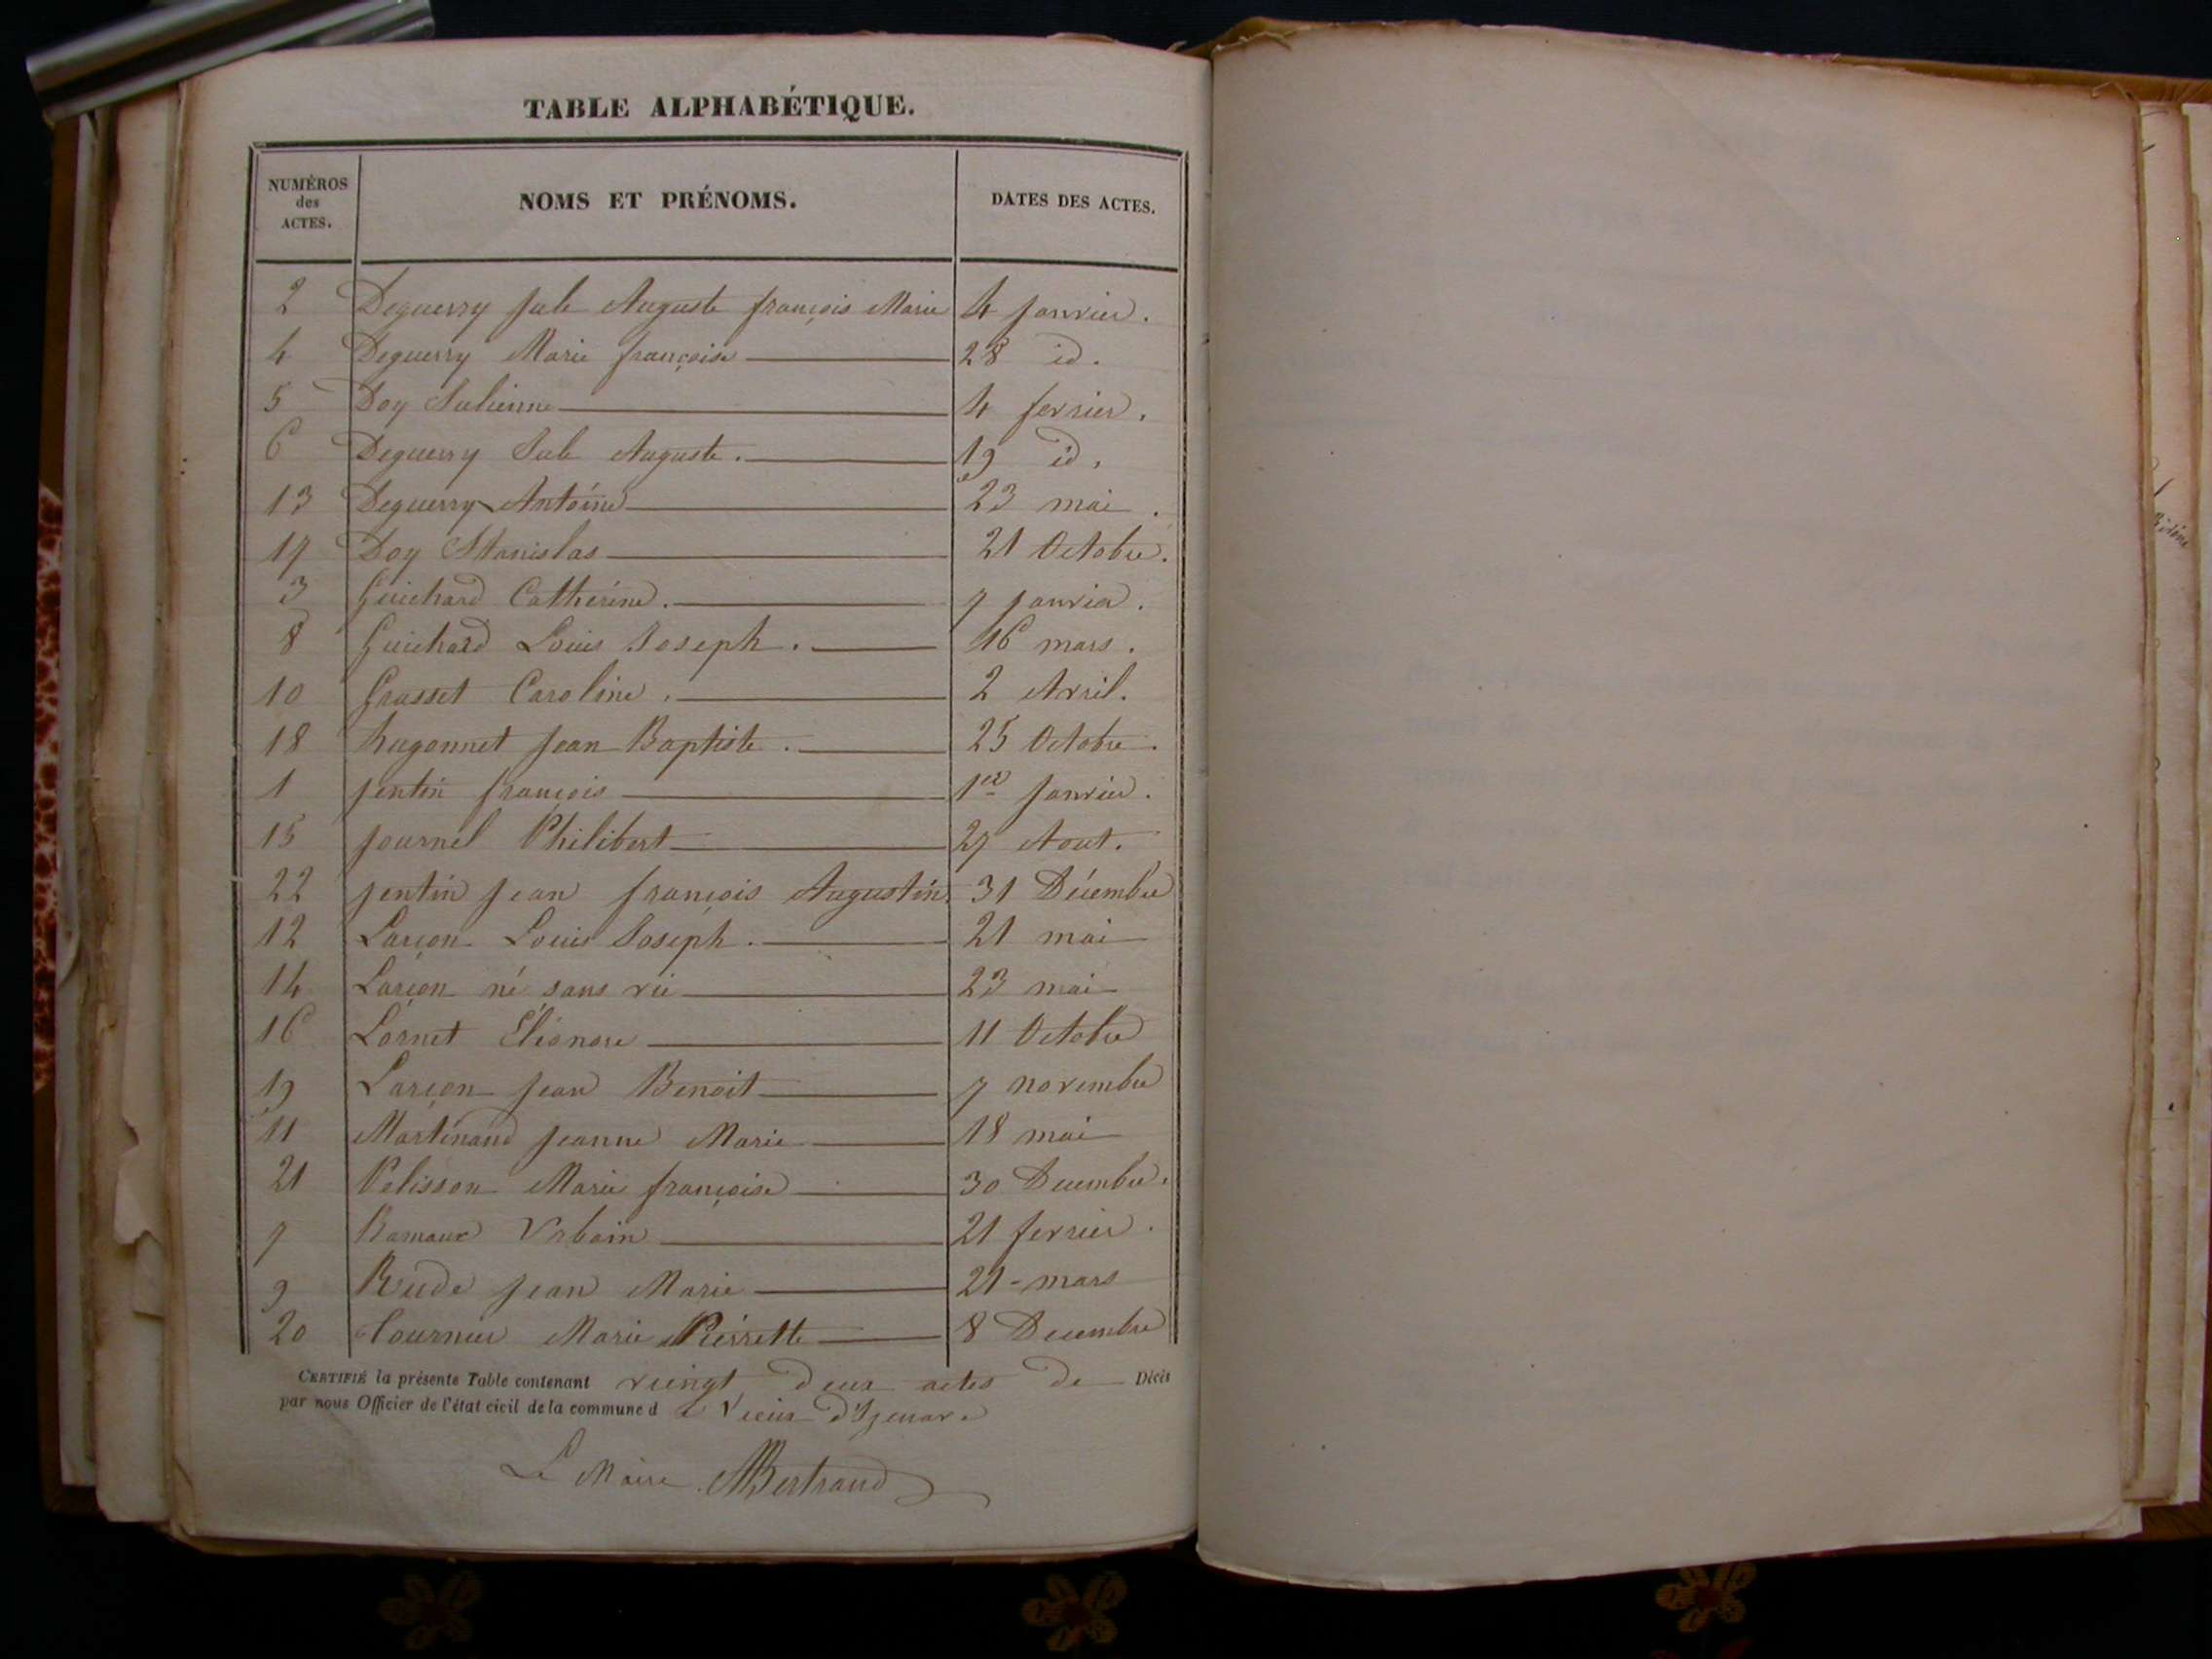 TABLE ALPHABÉTIQUE.
NUMÉROS des ACTES. NOMS ET PRÉNOMS. DATES DES ACTES.
2 Deguerry Jule Auguste françois Marie 4 janvier.
4 Deguerry Marie françoise 28 id.
5 Doy Julienne 4 fevrier.
6 Deguerry Jule Auguste. 19 id.
13 Deguerry Antoine 23 mai.
17 Doy Stanislas 21 Octobre.
3 Guichard Catherine. 7 janvier.
8 Guichard Louis Joseph. 16 mars.
10 Grasset Caroline. 2 Avril.
18 hugonnet jean Baptiste. 25 Octobre.
1 jentin françois 1er janvier.
15 journel Philibert 27 Aout.
22 jentin jean françois Augustin 31 Décembre
12 Larçon Louis Joseph. 21 mai
14 Larçon né sans vie 23 mai
16 Lornet Éléonore 11 Octobre
19 Larçon jean Benoit 7 novembre
11 Martinand jeanne Marie 18 mai
21 Pelisson Marie françoise 30 Decembre.
7 Ramaux Urbain 21 fevrier.
9 Rude jean Marie 21 - mars
20 Tournier Marie Pierrette 8 Decembre
CERTIFIÉ la présente Table contenant vingt deux actes de Décès
par nous Officier de l'état civil de la commune d e Vieux d'Izenave
Le Maire. Bertrand